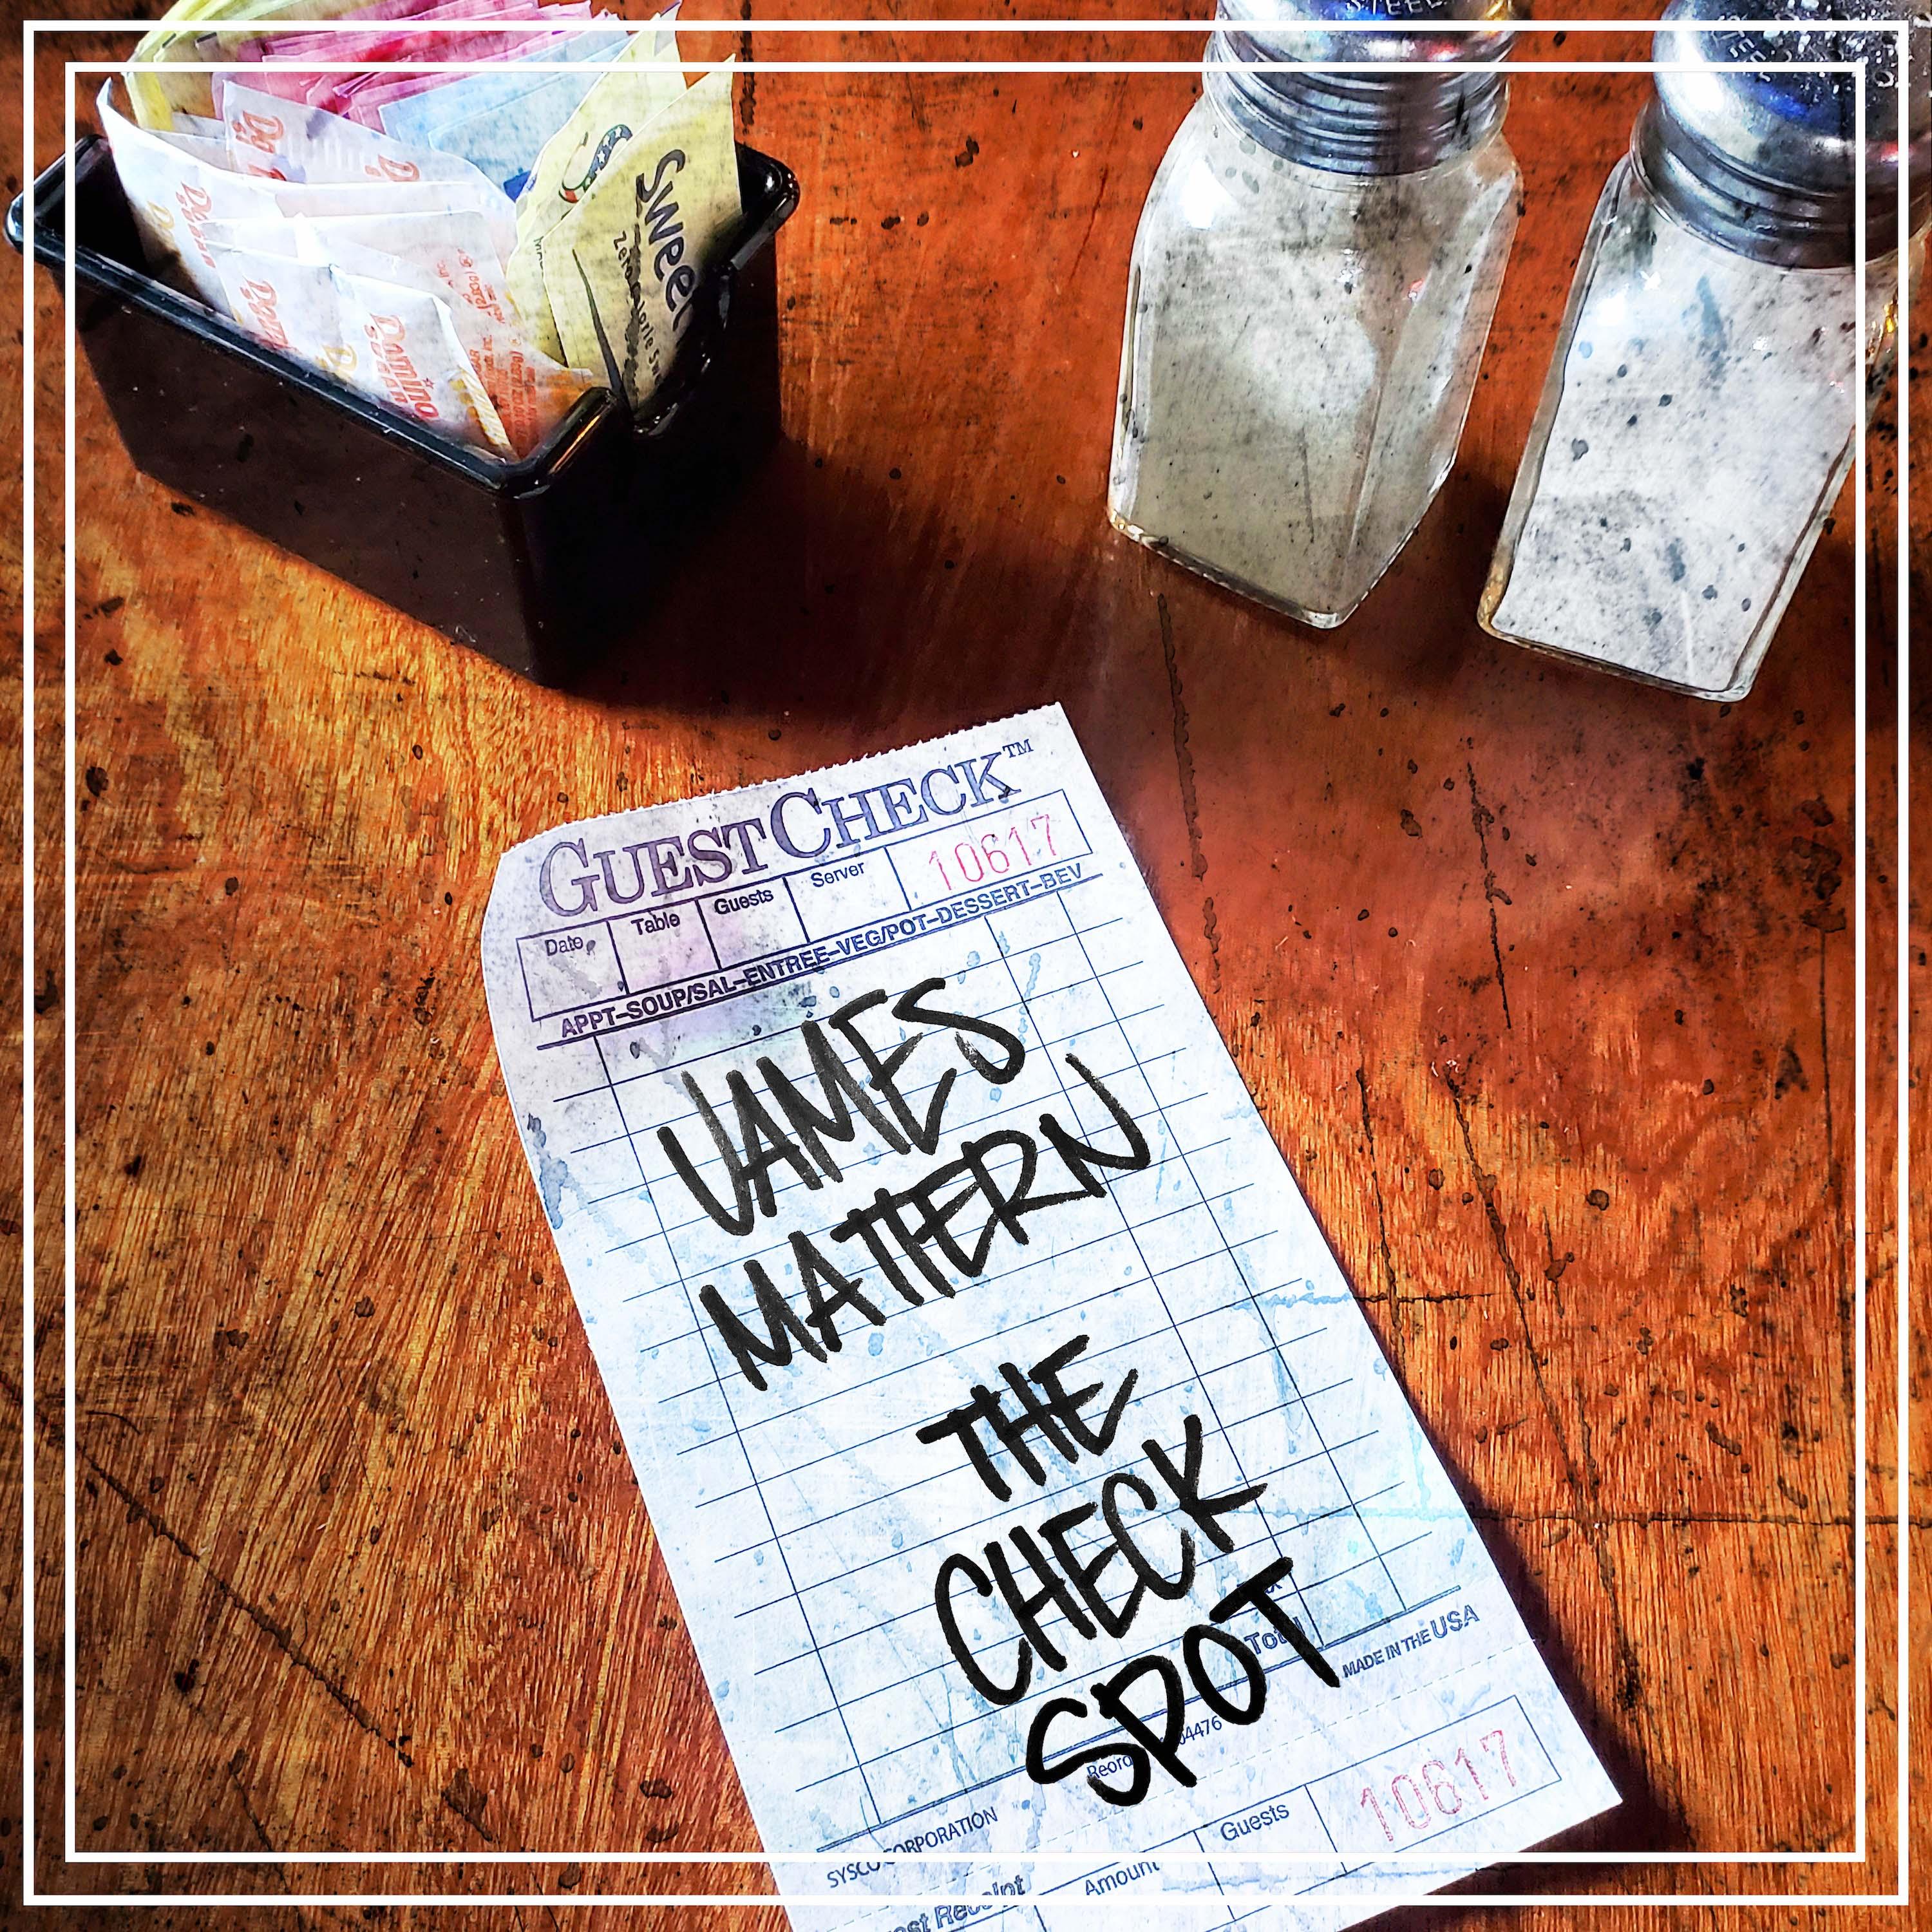 STEEL
STEEL
Sweet
Domino
GUEST CHECK™
Date
Table
Guests
Server
10617
APPT–SOUP/SAL–ENTREE–VEG/POT–DESSERT–BEV
JAMES
MATTERN
THE
CHECK
SPOT
Total
MADE IN THE USA
SYSCO CORPORATION
Guests
10617
Amount